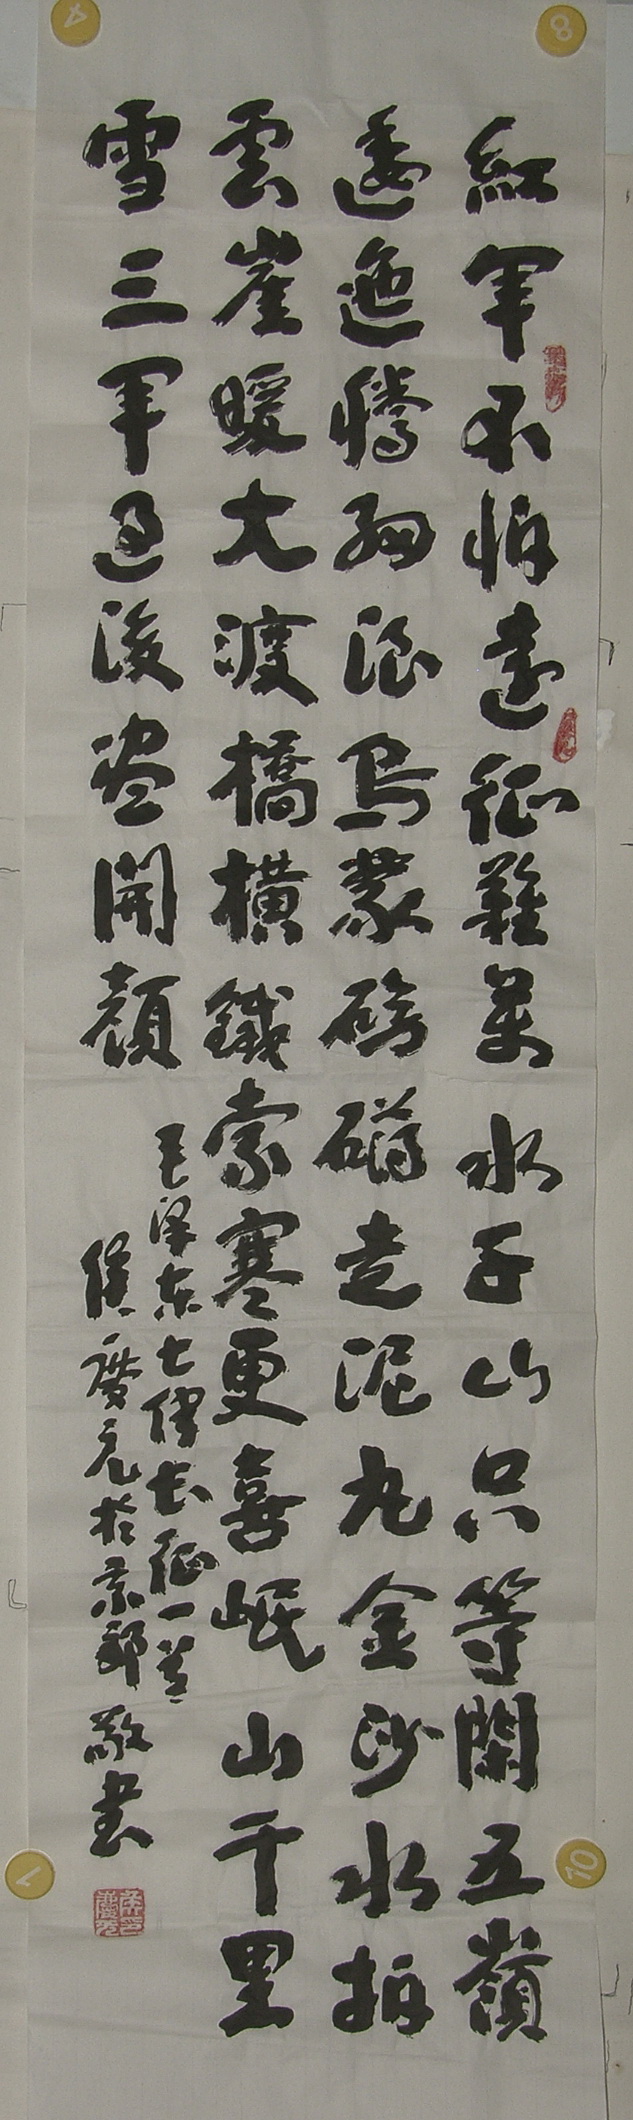 紅軍不怕遠征難萬水千山只等閑五嶺
逶迤騰細浪烏蒙磅礴走泥丸金沙水拍
雲崖暖大渡橋橫鐵索寒更喜岷山千里
雪三軍過後盡開顏
毛澤東七律長征一首
侯慶元於京郊敬書
4
8
7
10